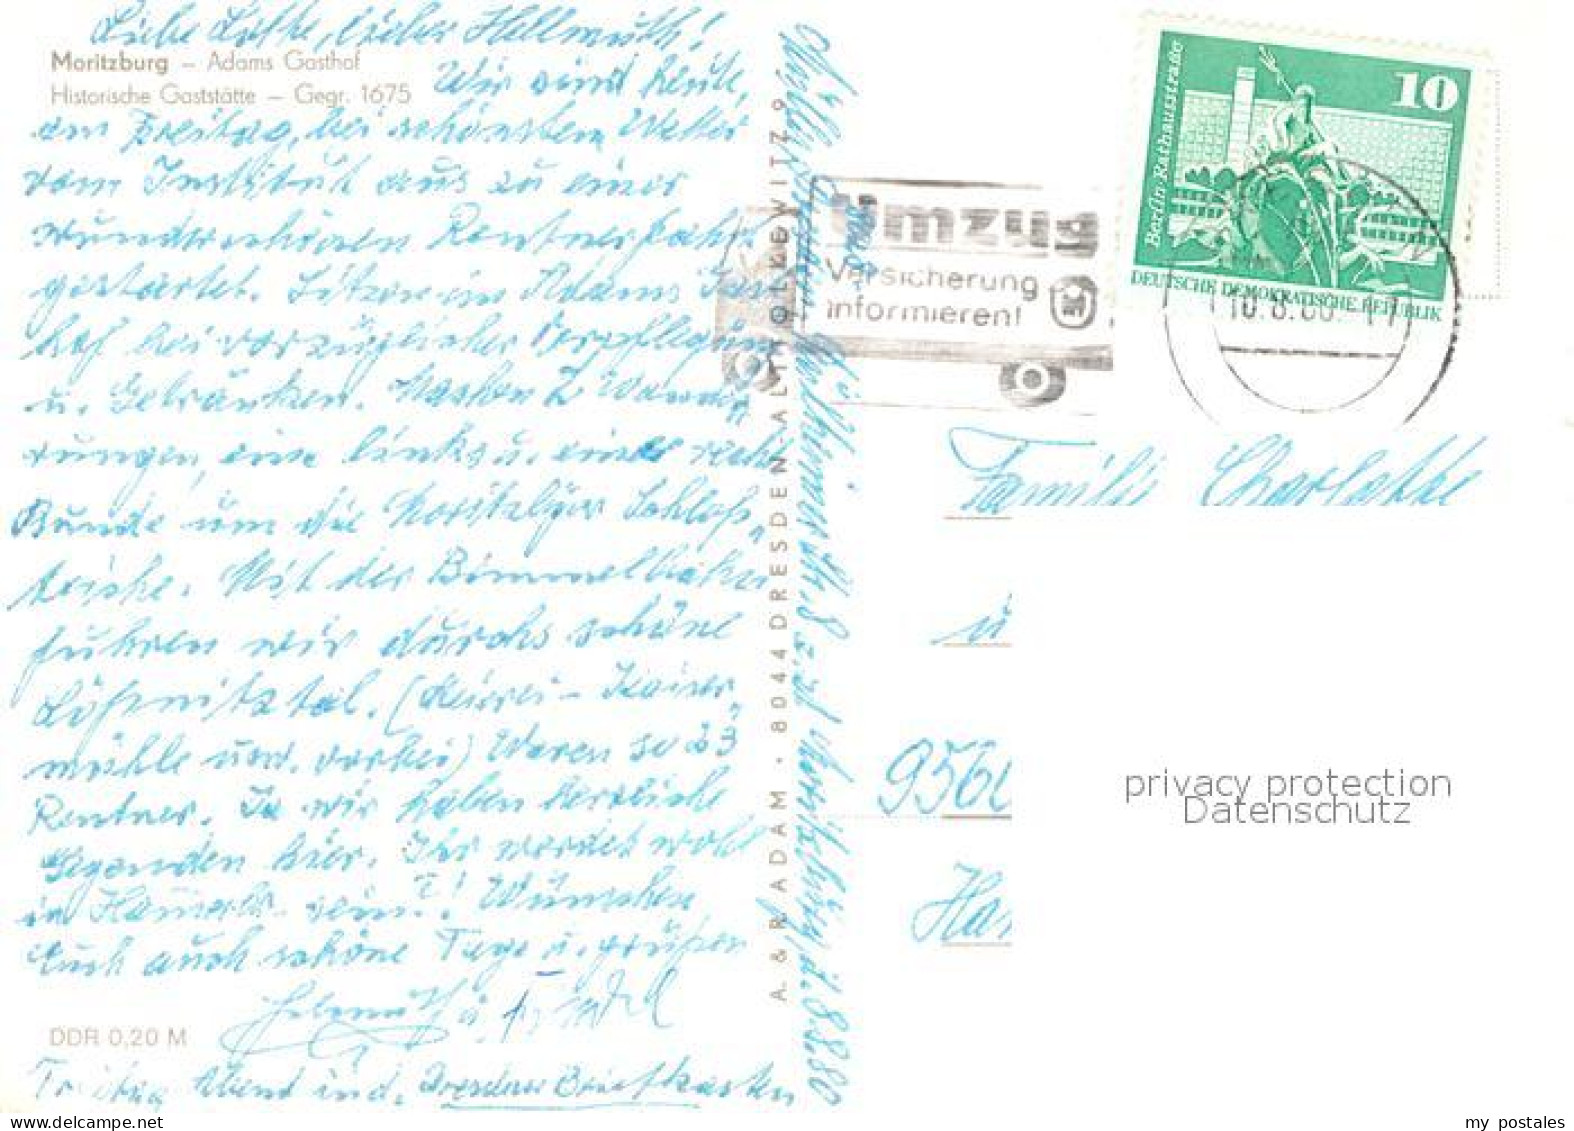 Liebe Lotte, lieber Hellmuth!
Moritzburg – Adams Gasthof
Historische Gaststätte – Gegr. 1675
Wir sind heute,
am Freitag, bei schönstem Wetter
vom Institut aus zu einer
wunderschönen Rentnerfahrt
gestartet. Sitzen in Adams Gast
hof bei vorzüglicher Verpflegung
u. Getränken. Machen 2 Wande
rungen, eine links u. eine
Runde um die Moritzburger Schloß
teiche. Mit der Bimmelbahn
fuhren wir durchs schöne
Lößnitztal. (Meierei -
mühle usw. vorbei) Waren so 23
Rentner. Ja wir haben herrliche
Gegenden hier. Ihr werdet wohl
in sein?! Wünschen
Euch auch schöne Tage u. grüßen
Helmuth u.
DDR 0,20 M
Freitag Abend ind. Dresdner Briefkasten
A. & R. ADAM · 8044 DRESDEN ALTHOLKEWITZ 9
Moritzburg, d. 8.8.80
Umzug
Versicherung
informieren!
10
Berlin-Rathausstraße
DEUTSCHE DEMOKRATISCHE REPUBLIK
Familie Charlotte
u
956
Ha
privacy protection
Datenschutz
my postales